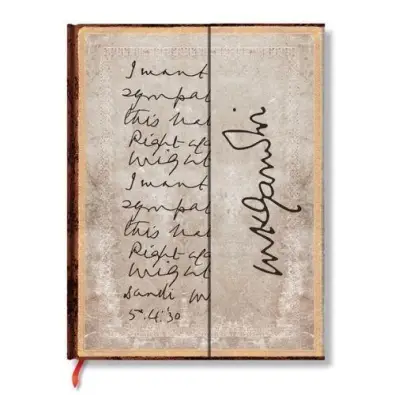 I want
sympat
this bat
Right aga
Might
I want
sympat
this bat
Right aga
Might
Dandi M
5.4.'30
MKGandhi